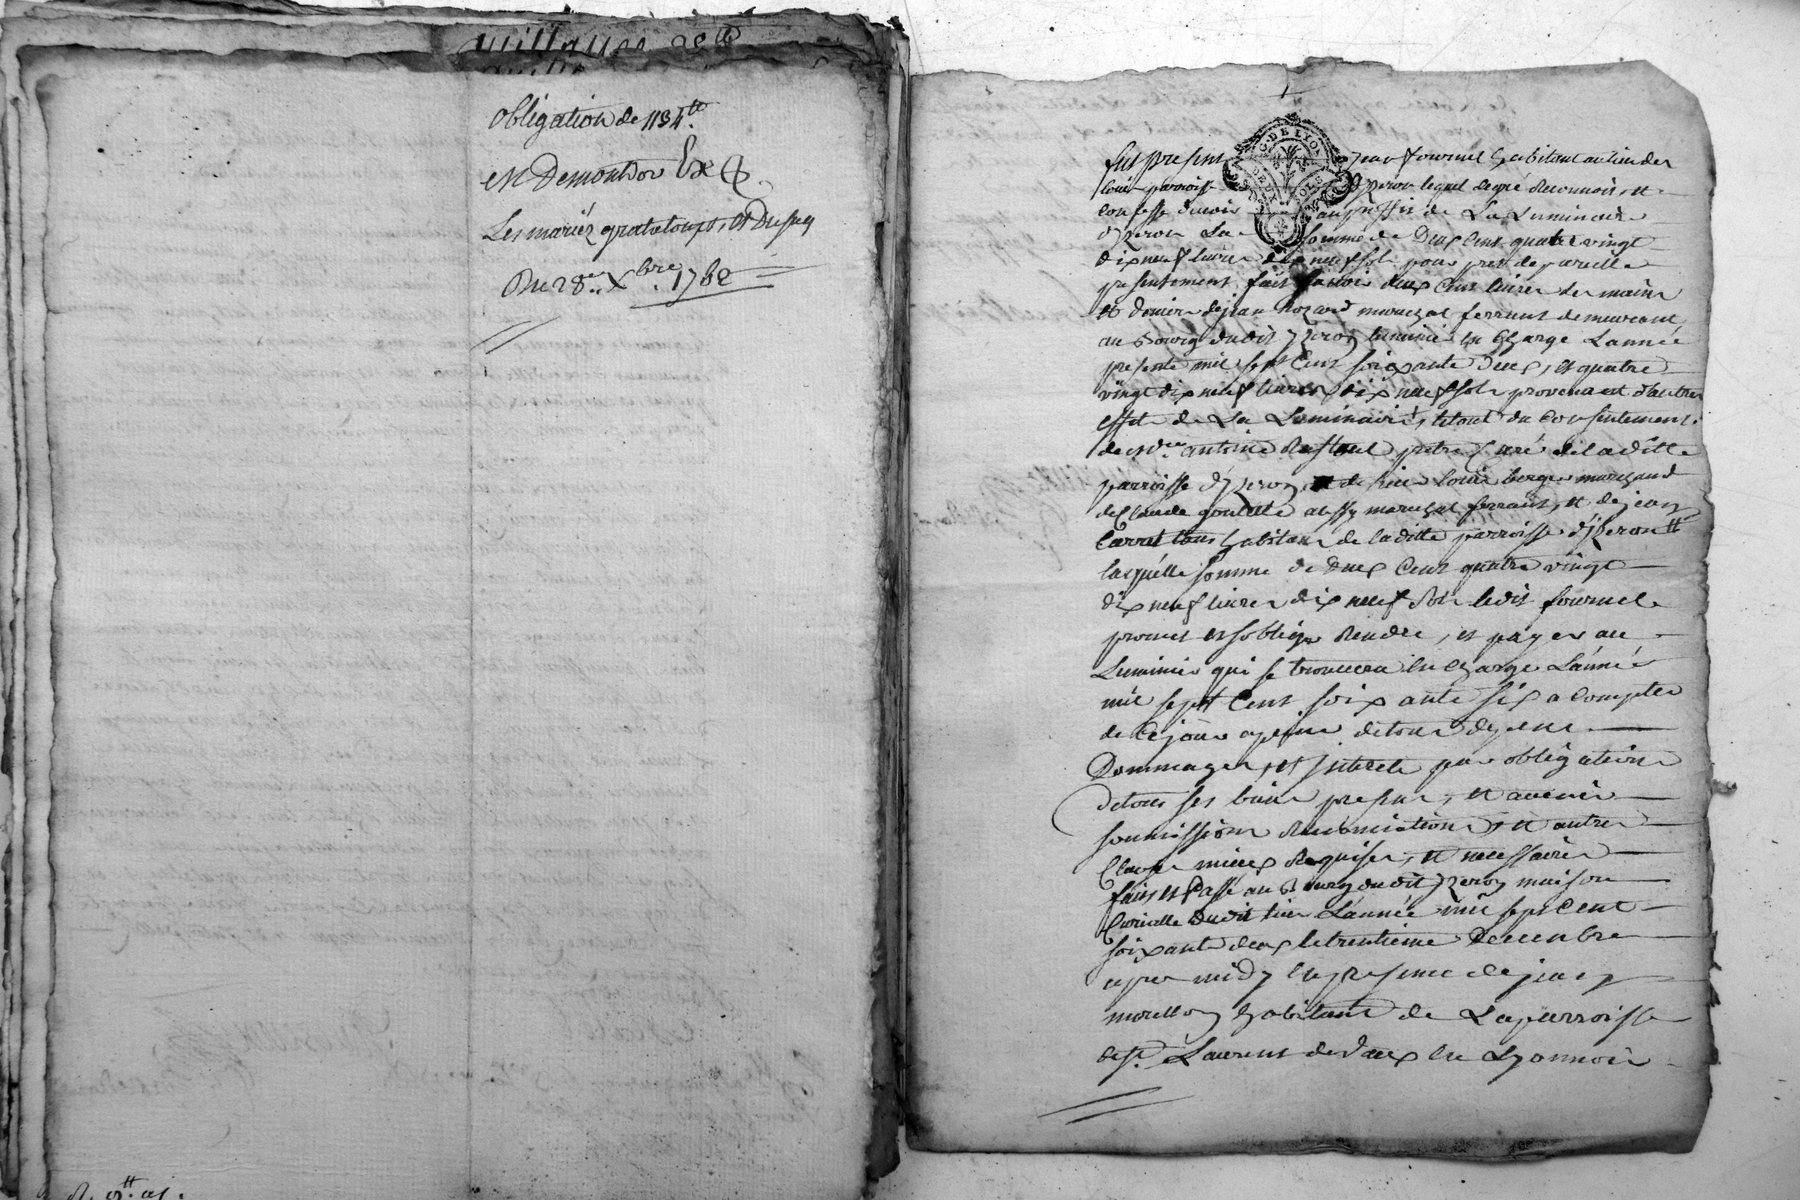 obligation de 1134 ₶
et Demont
Les mariés grataloup, et
Du 28e Xbre 1762
G. DE LYON
DEUX SOLS
fut present Jean fournel habitant au lieu des
parroisse d'yzeron lequel de gré reconnoit, et
confesse devoir au proffit de La Luminaire
d'yzeron La somme de Deux Cent quatre vingt
dix neuf livres dix neuf sols pour prest de pareille
presentement fait savoir deux Cent livres des mains
et deniers de jean marechal ferrant demeurant
au Bourg dudit yzeron luminier en Charge L'année
presente mil sept Cent soixante Deux, et quatre
vingt dix neuf livres dix neuf sols provenant d'autres
effets de La Luminaire, le tout du Consentement
de Mre antoine pretre Curé de laditte
parroisse d'yzeron, de sieur Louis berger marchand
de Claude goutelle aussy marechal ferrant, et de jean
Carret tous habitans de laditte parroisse d'yzeron
laquelle somme de Deux Cent quatre vingt
dix neuf livres dix neuf sols ledit fournel
promet et s'oblige Rendre, et payer au
Luminier qui se trouvera en Charge L'année
mil sept Cent soixante six a Compter
de Ce jour a peine de tous depens
Dommages, et Interets par obligation
de tous ses biens presens, et avenir
soumissions Renonciations, et autres
Clauses mieux Requises, et necessaires
fait et Passé au Bourg dudit yzeron maison
Curialle Dudit lieu L'année mil sept Cent
soixante deux le trentieme Decembre
apres midy en presence de jean
habitant de La parroisse
de St. Laurent de Vaux en Lyonnois